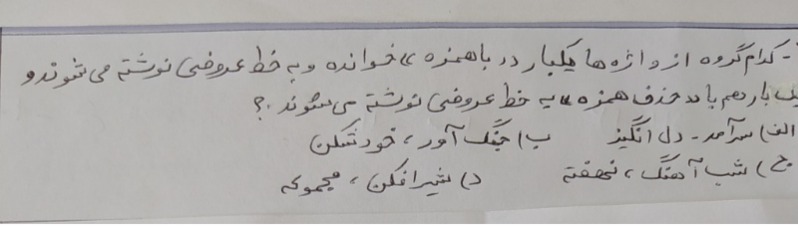 - کدام گروه از واژه ها یکبار در «با همزه» خوانده و به خط عروضی نوشته می شوند و
یک بار هم با «حذف همزه» به خط عروضی نوشته می شوند ؟
الف) سرآمد - دل انگیز ب) جنگ آور ، خودشکن
ج) شب آهنگ ، نهفته د) شیرافکن ، مجموعه